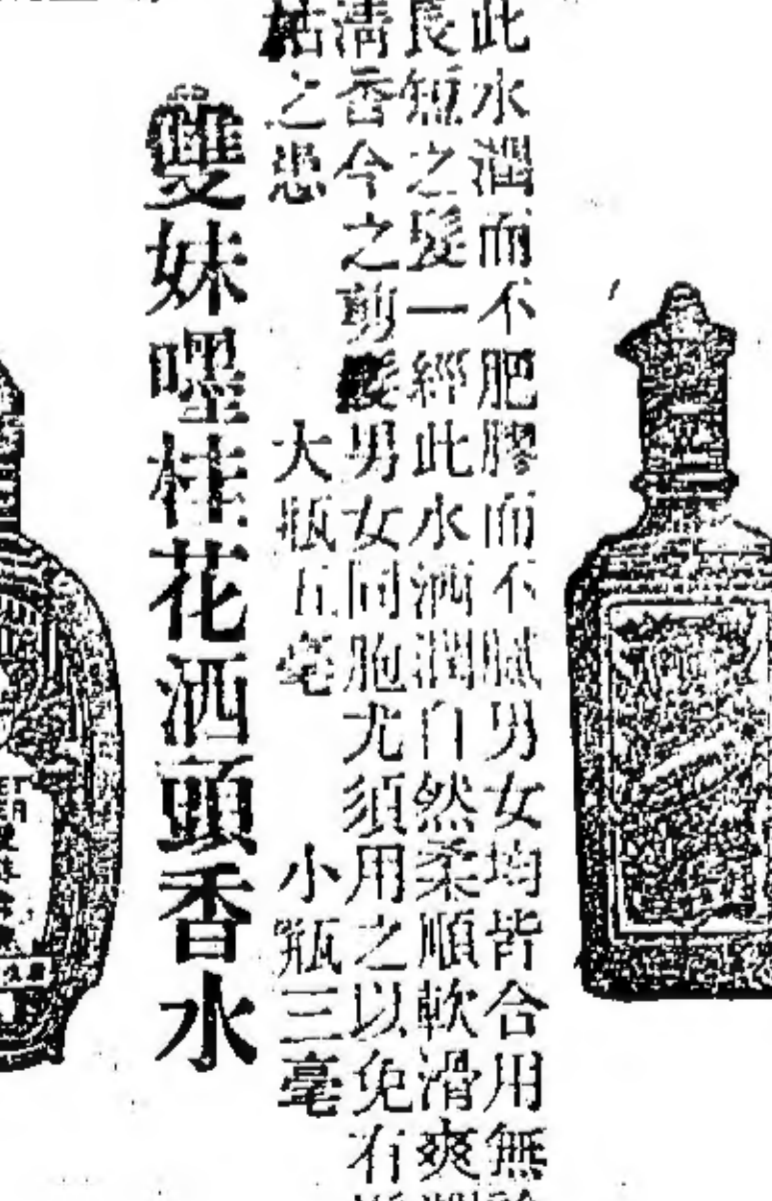 此水潤而不肥膠而不膩男女均皆合用無
長短之髮一經此水洒潤自然柔順軟滑爽
清香今之剪髮男女同胞尤須用之以免有
枯之患 大瓶五毫 小瓶三毫
雙妹嚜桂花洒頭香水